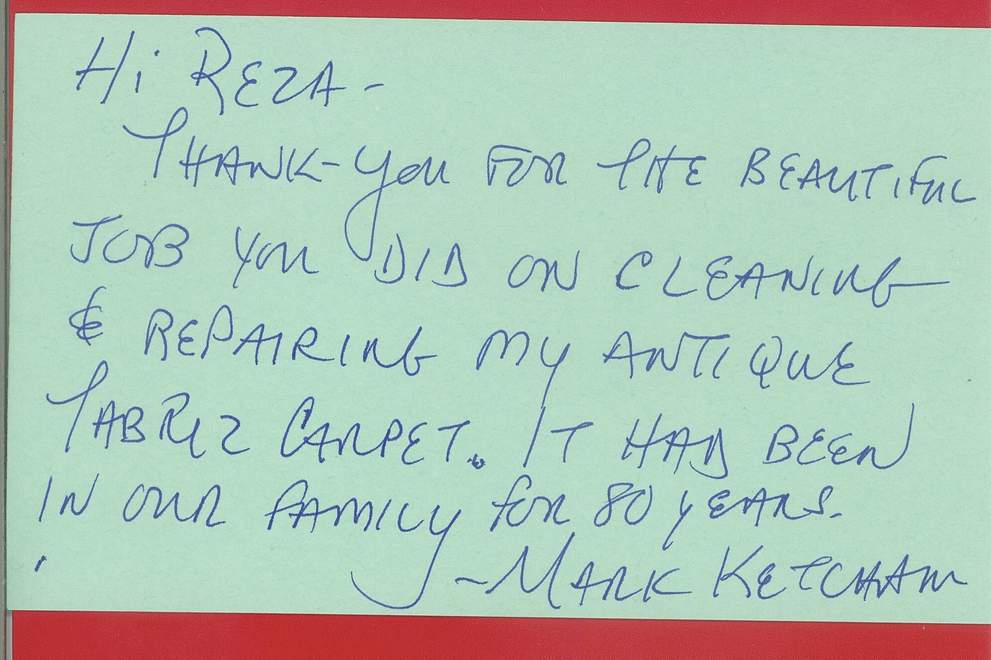 Hi REZA-
THANK-YOU FOR THE BEAUTIFUL
JOB YOU DID ON CLEANING
& REPAIRING MY ANTIQUE
TABRIZ CARPET. IT HAD BEEN
IN OUR FAMILY FOR 80 YEARS.
-MARK KETCHAM